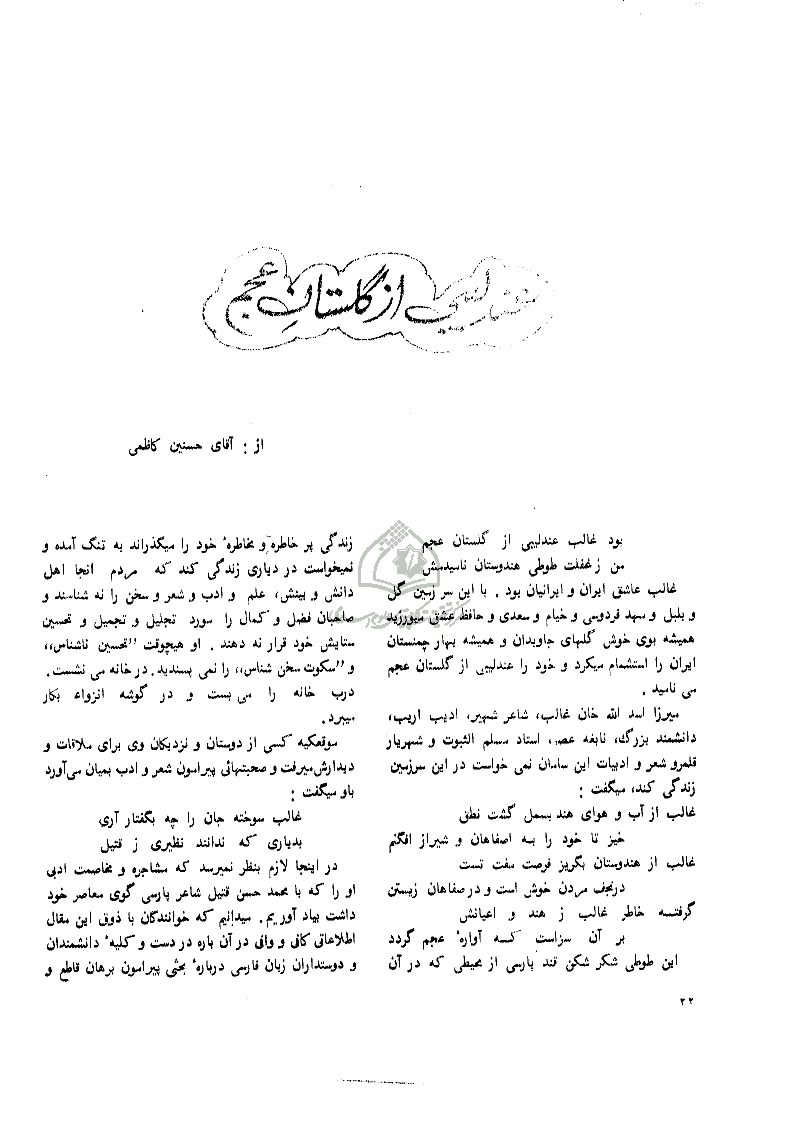 عندلیبی از گلستانِ عجم
از : آقای حسنین کاظمی
بود غالب عندلیبی از گلستان عجم
من ز غفلت طوطی هندوستان نامیدمش
غالب عاشق ایران و ایرانیان بود . با این سر زمین گل
و بلبل و مهد فردوسی و خیام و سعدی و حافظ عشق میورزید
همیشه بوی خوش گلهای جاویدان و همیشه بهار چمنستان
ایران را استشمام میکرد و خود را عندلیبی از گلستان عجم
می نامید .
میرزا اسد الله خان غالب، شاعر شهیر، ادیب اریب،
دانشمند بزرگ، نابغه عصر، استاد مسلم الثبوت و شهریار
قلمرو شعر و ادبیات این سامان نمی خواست در این سرزمین
زندگی کند، میگفت :
غالب از آب و هوای هند بسمل گشت نطق
خیز تا خود را بـه اصفاهان و شیراز افگنم
غالب از هندوستان بگریز فرصت مفت تست
در نجف مردن خوش است و در صفاهان زیستن
گرفتـه خاطر غالب ز هند و اعیانش
بر آن سراست کـه آوارهٔ عجم گردد
این طوطی شکر شکن قند پارسی از محیطی که در آن
زندگی پر خاطره و مخاطرهٔ خود را میگذراند به تنگ آمده و
نمیخواست در دیاری زندگی کند که مردم انجا اهل
دانش و بینش، علم و ادب و شعر و سخن را نه شناسند و
صاحبان فضل و کمال را مورد تجلیل و تجمیل و تحسین
ستایش خود قرار نه دهند . او هیچوقت ”تحسین ناشناس،،
و ”سکوت سخن شناس،، را نمی پسندید. در خانه می نشست.
درب خانه را می بست و در گوشه انزواء بکار
میبرد.
موقعکیه کسی از دوستان و نزدیکان وی برای ملاقات و
دیدارش میرفت و صحبتهائی پیرامون شعر و ادب بمیان می‌آورد
باو میگفت :
غالب سوخته جان را چه بگفتار آری
بدیاری که ندانند نظیری ز قتیل
در اینجا لازم بنظر نمیرسد که مشاجره و مخاصمت ادبی
او را که با محمد حسن قتیل شاعر پارسی گوی معاصر خود
داشت بیاد آوریم. میدانیم که خوانندگان با ذوق این مقال
اطلاعاتی کافی و وافی در آن باره در دست و کلیهٔ دانشمندان
و دوستداران زبان فارسی دربارهٔ بحثی پیرامون برهان قاطع و
۲۲